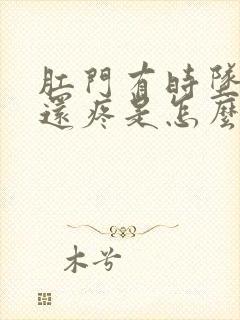 肛門有時墜
還疼是怎麼
木兮